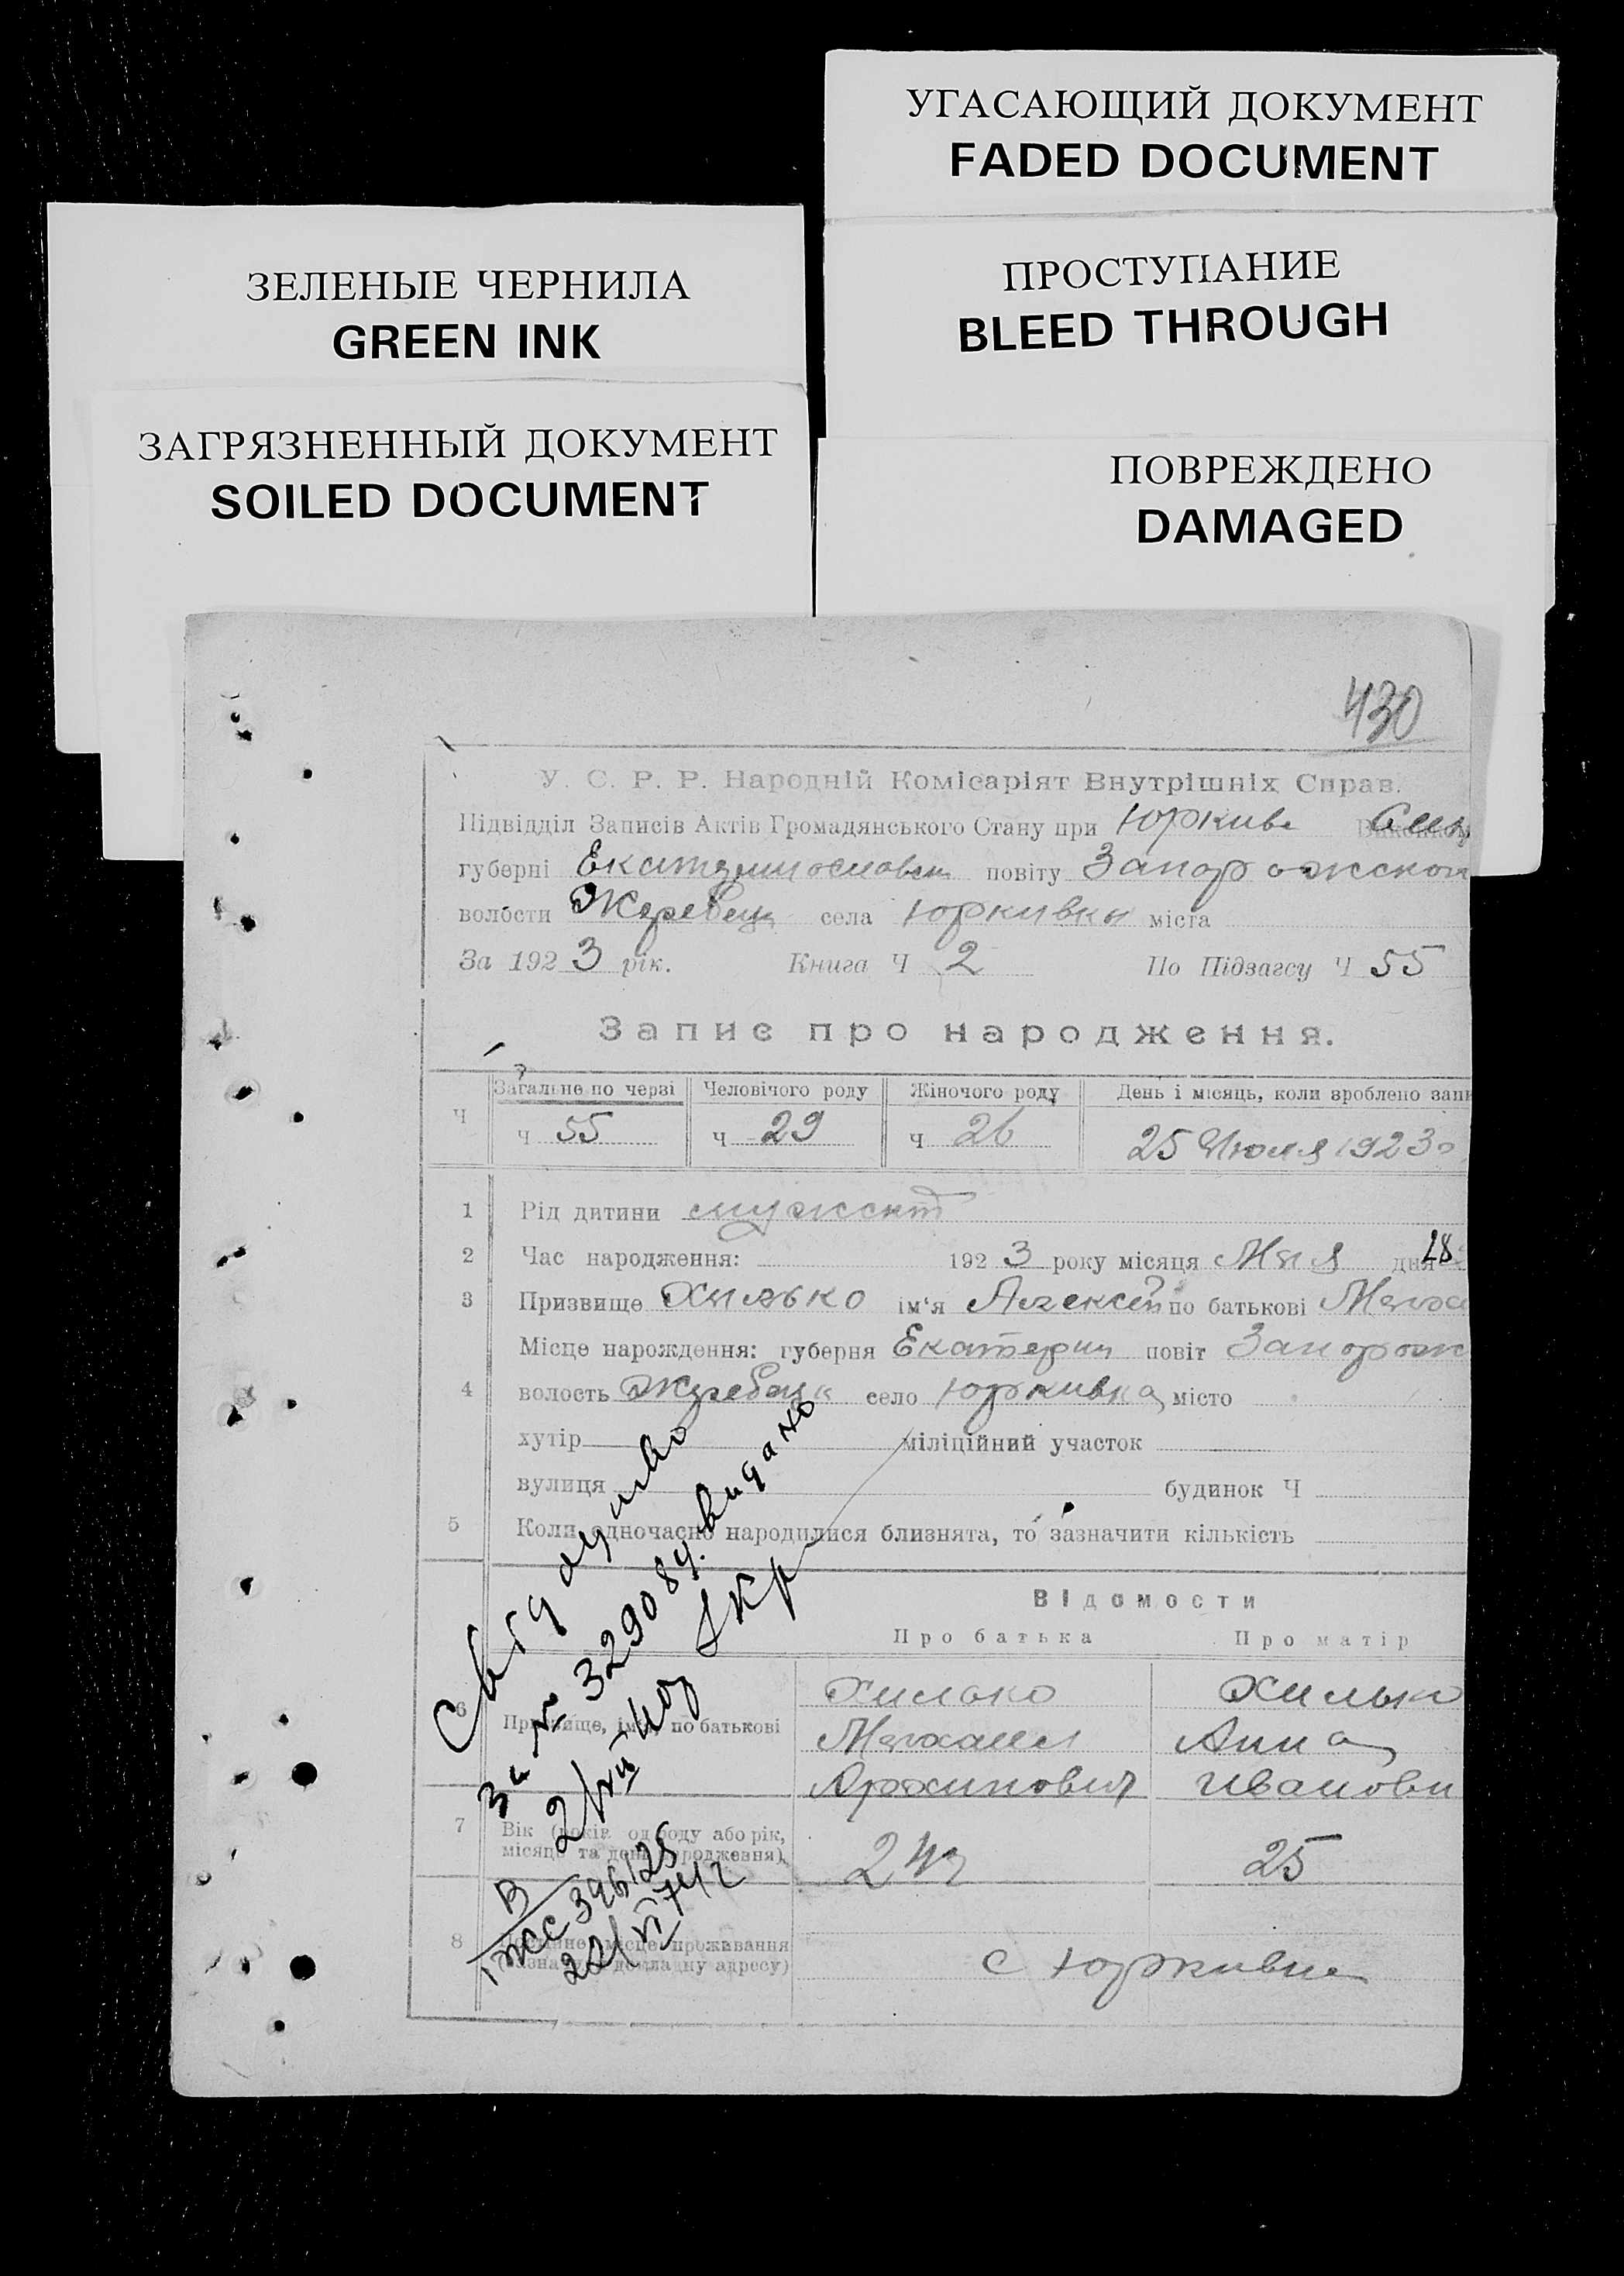 УГАСАЮЩИЙ ДОКУМЕНТ
FADED DOCUMENT
ПРОСТУПАНИЕ
BLEED THROUGH
ЗЕЛЕНЫЕ ЧЕРНИЛА
GREEN INK
ЗАГРЯЗНЕННЫЙ ДОКУМЕНТ
SOILED DOCUMENT
ПОВРЕЖДЕНО
DAMAGED
430
У. С. Р. Р. Народній Комісаріят Внутрішніх Справ.
Підвідділ Записів Актів Громадянського Стану при Юркивс
губерні повіту Запорожской
волости Жеребец села Юркивки міста
За 1923 рік. Книга Ч 2 По Підзагсу Ч 55
Запис про народження.
Ч Загальне по черзі Человічого роду Жіночого роду День і місяць, коли зроблено запи
ч 55 ч 29 ч 26 25 Июля 1923
1 Рід дитини мужскт
2 Час народження: 1923 року місяця Мая дня 28
3 Призвище Хилько ім'я Алексей по батькові
Місце народження: губерня Екатерин повіт Запорож
4 волость Жеребецк село Юркивка місто
хутір міліційний участок
вулиця будинок Ч
5 Коли одночасно народилися близнята, то зазначити кількість
Відомости
Про батька Про матір
6 Призвище, ім'я, по батькові
Хилько Хилько
Михаил Анна
Архипович Иванови
7 Вік (років од роду або рік,
місяць та день народження)
24 25
8 Постійне місце проживання
(зазначити докладну адресу)
с Юркивка
Свідоцтво
за № 329084. видано
396125
22/VI 74 г